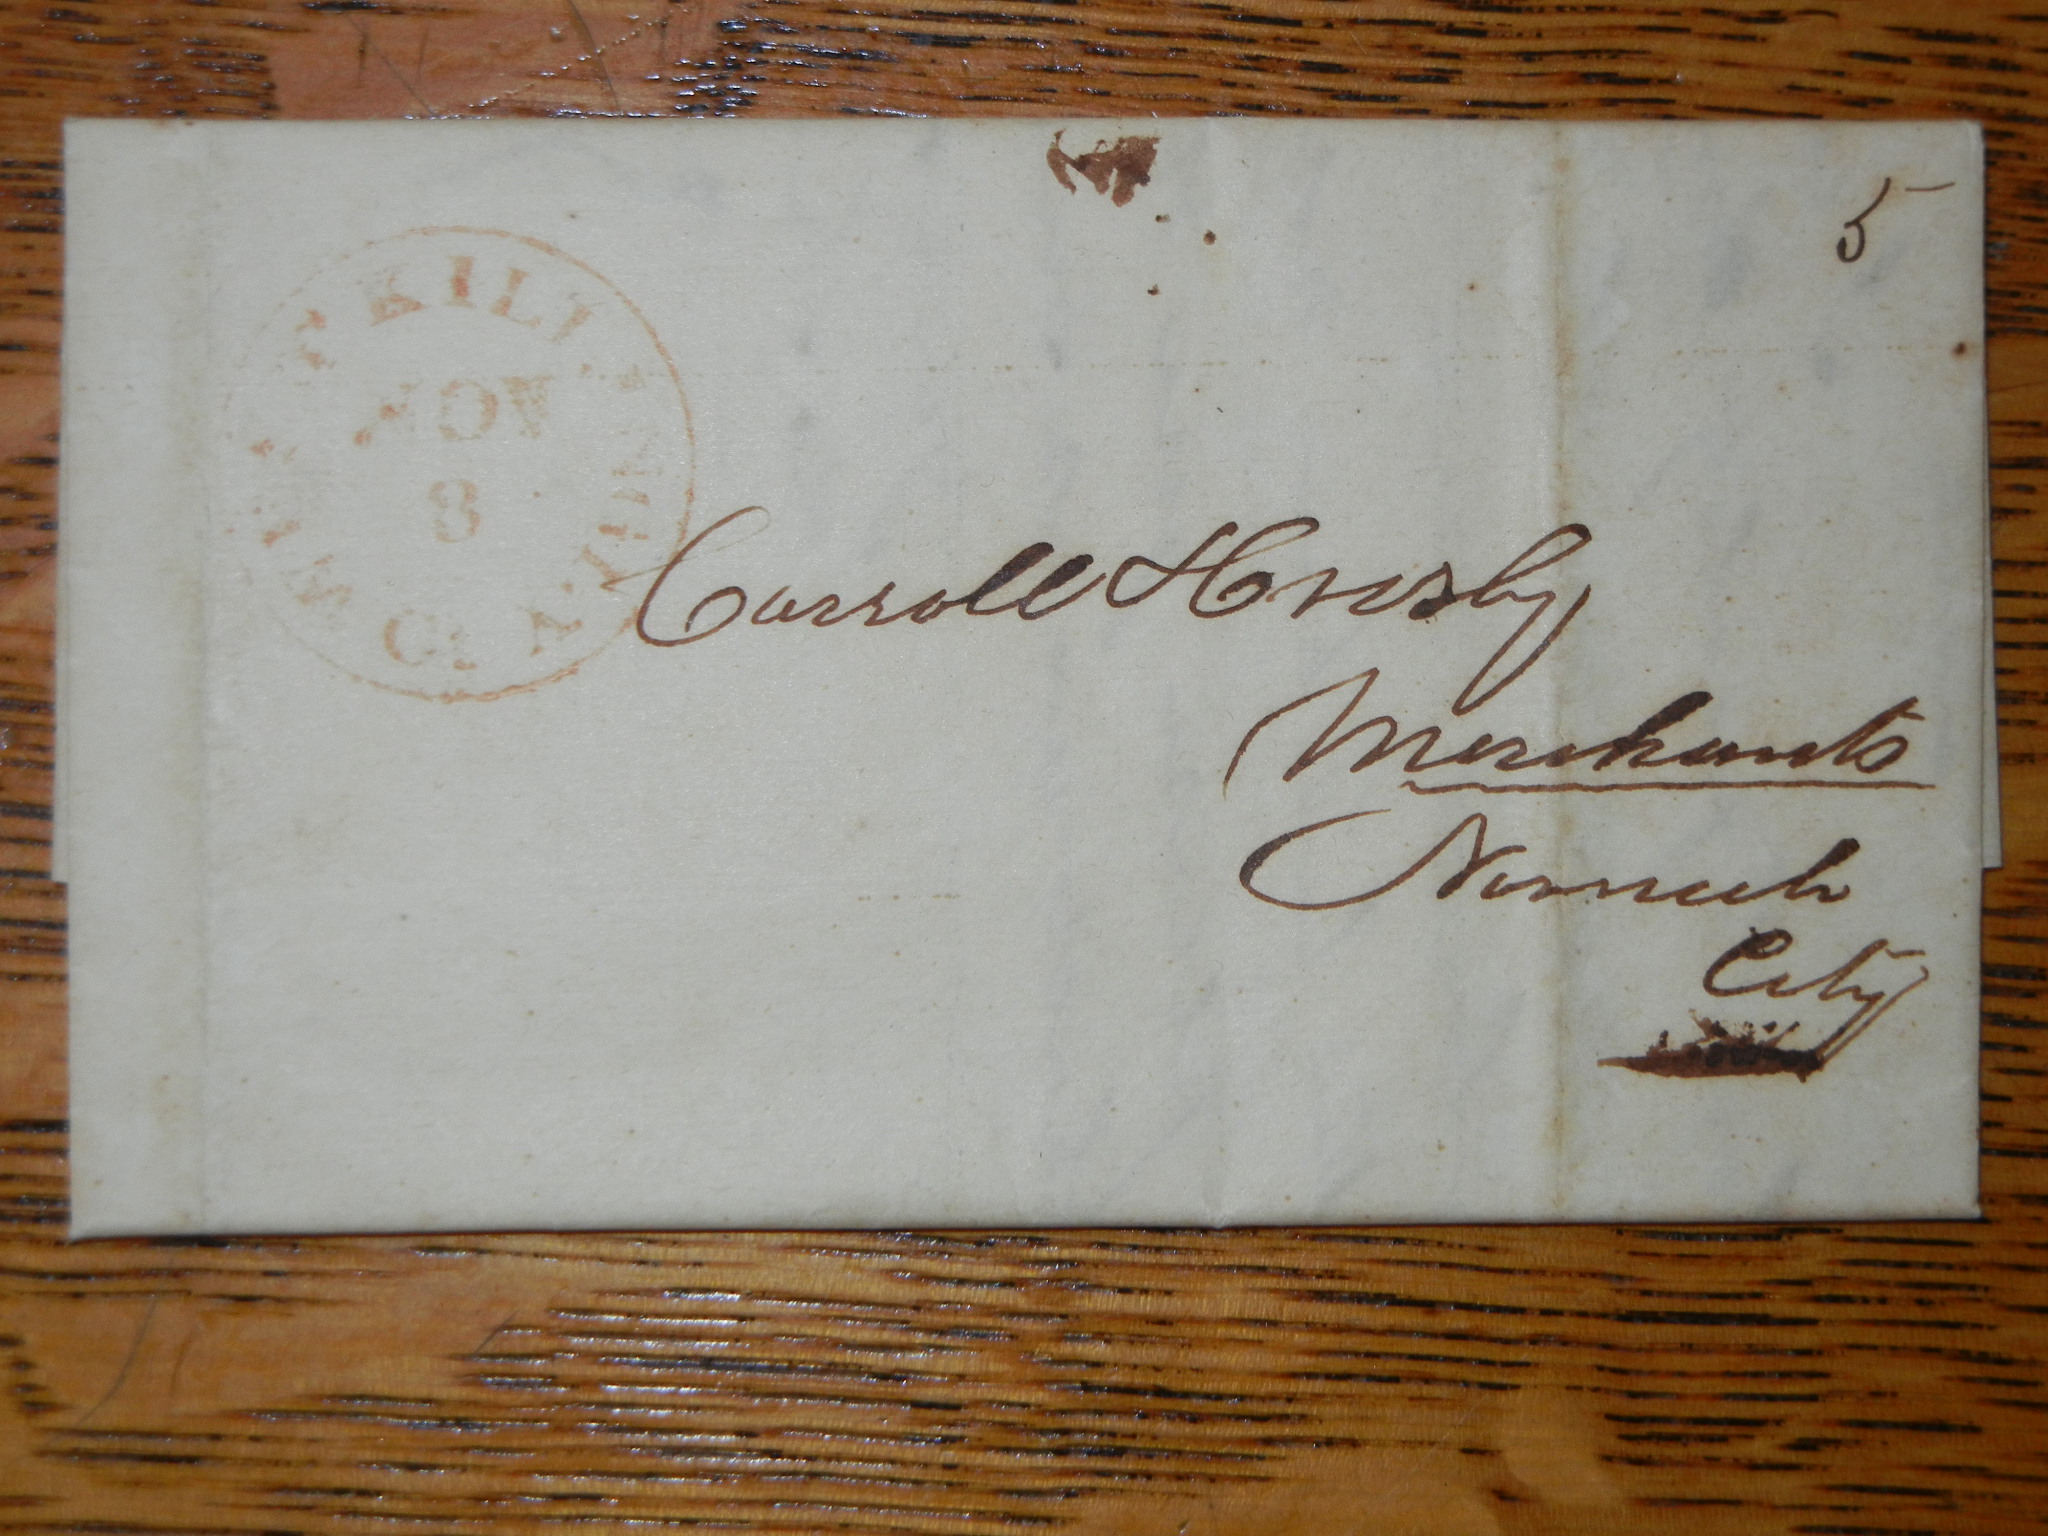 5
NOV
8
Carroll & Crosby
Merchants
Norwich
City